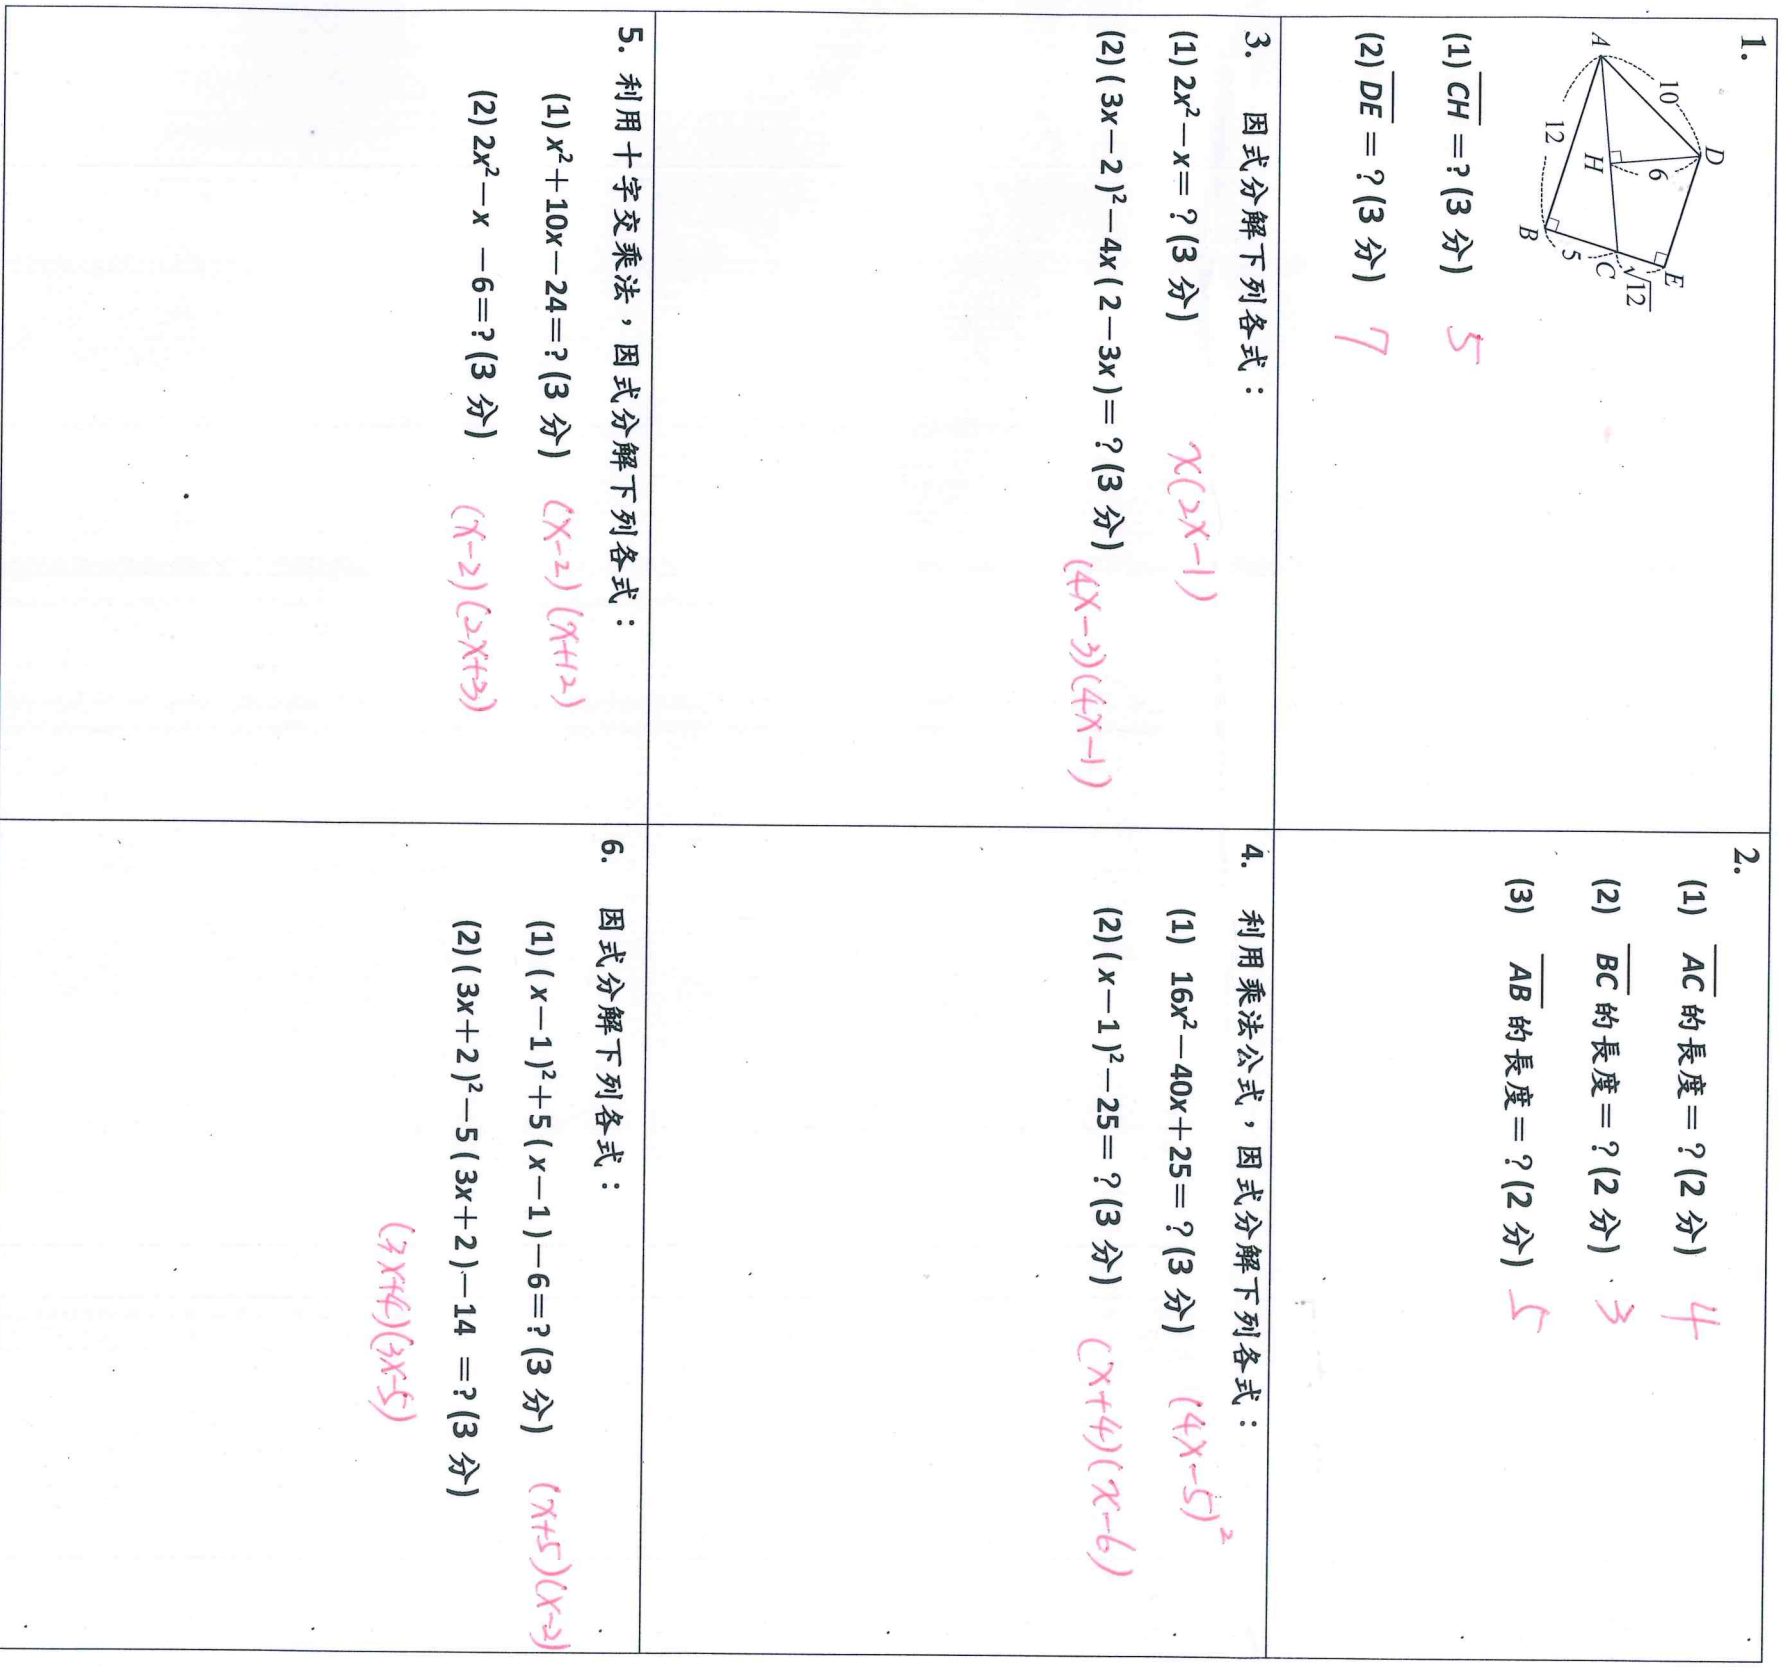 1.
A
10
D
H
6
12
B
5
C
√12
E
(1) CH =? (3 分) 5
(2) DE = ? (3 分) 7
2.
(1) AC 的長度= ? (2 分) 4
(2) BC 的長度= ? (2 分) 3
(3) AB 的長度= ? (2 分) 5
3. 因式分解下列各式：
(1) 2x²－x= ? (3 分) x(2x-1)
(2) (3x－2)²－4x(2－3x)= ? (3 分) (4x-3)(4x-1)
4. 利用乘法公式，因式分解下列各式：
(1) 16x²－40x＋25= ? (3 分) (4x-5)²
(2) (x－1)²－25= ? (3 分) (x+4)(x-6)
5. 利用十字交乘法，因式分解下列各式：
(1) x²＋10x－24=? (3 分) (x-2)(x+12)
(2) 2x²－x －6=? (3 分) (x-2)(2x+3)
6. 因式分解下列各式：
(1) (x－1)²＋5(x－1)－6=? (3 分) (x+5)(x-2)
(2) (3x＋2)²－5(3x＋2)－14 =? (3 分)
(3x+4)(3x-5)